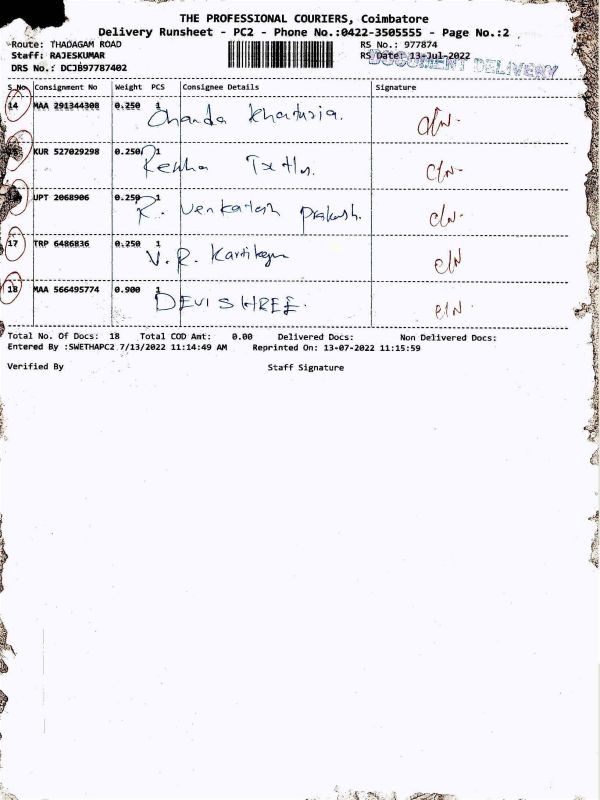 THE PROFESSIONAL COURIERS, Coimbatore
Delivery Runsheet - PC2 - Phone No.:0422-3505555 - Page No.:2
Route: THADAGAM ROAD RS No.: 977874
Staff: RAJESKUMAR RS Date: 13-Jul-2022
DRS No.: DCJB97787402 DOCUMENT DELIVERY
S.No Consignment No Weight PCS Consignee Details Signature
14 MAA 291344308 0.250 1 Chanda
KUR 527029298 0.250 1
UPT 2068906 0.250 1 R. Venkatesh Prakash.
17 TRP 6486836 0.250 1 V. R.
18 MAA 566495774 0.900 1 DEVISHREE.
Total No. Of Docs: 18 Total COD Amt: 0.00 Delivered Docs: Non Delivered Docs:
Entered By :SWETHAPC2 7/13/2022 11:14:49 AM Reprinted On: 13-07-2022 11:15:59
Verified By Staff Signature